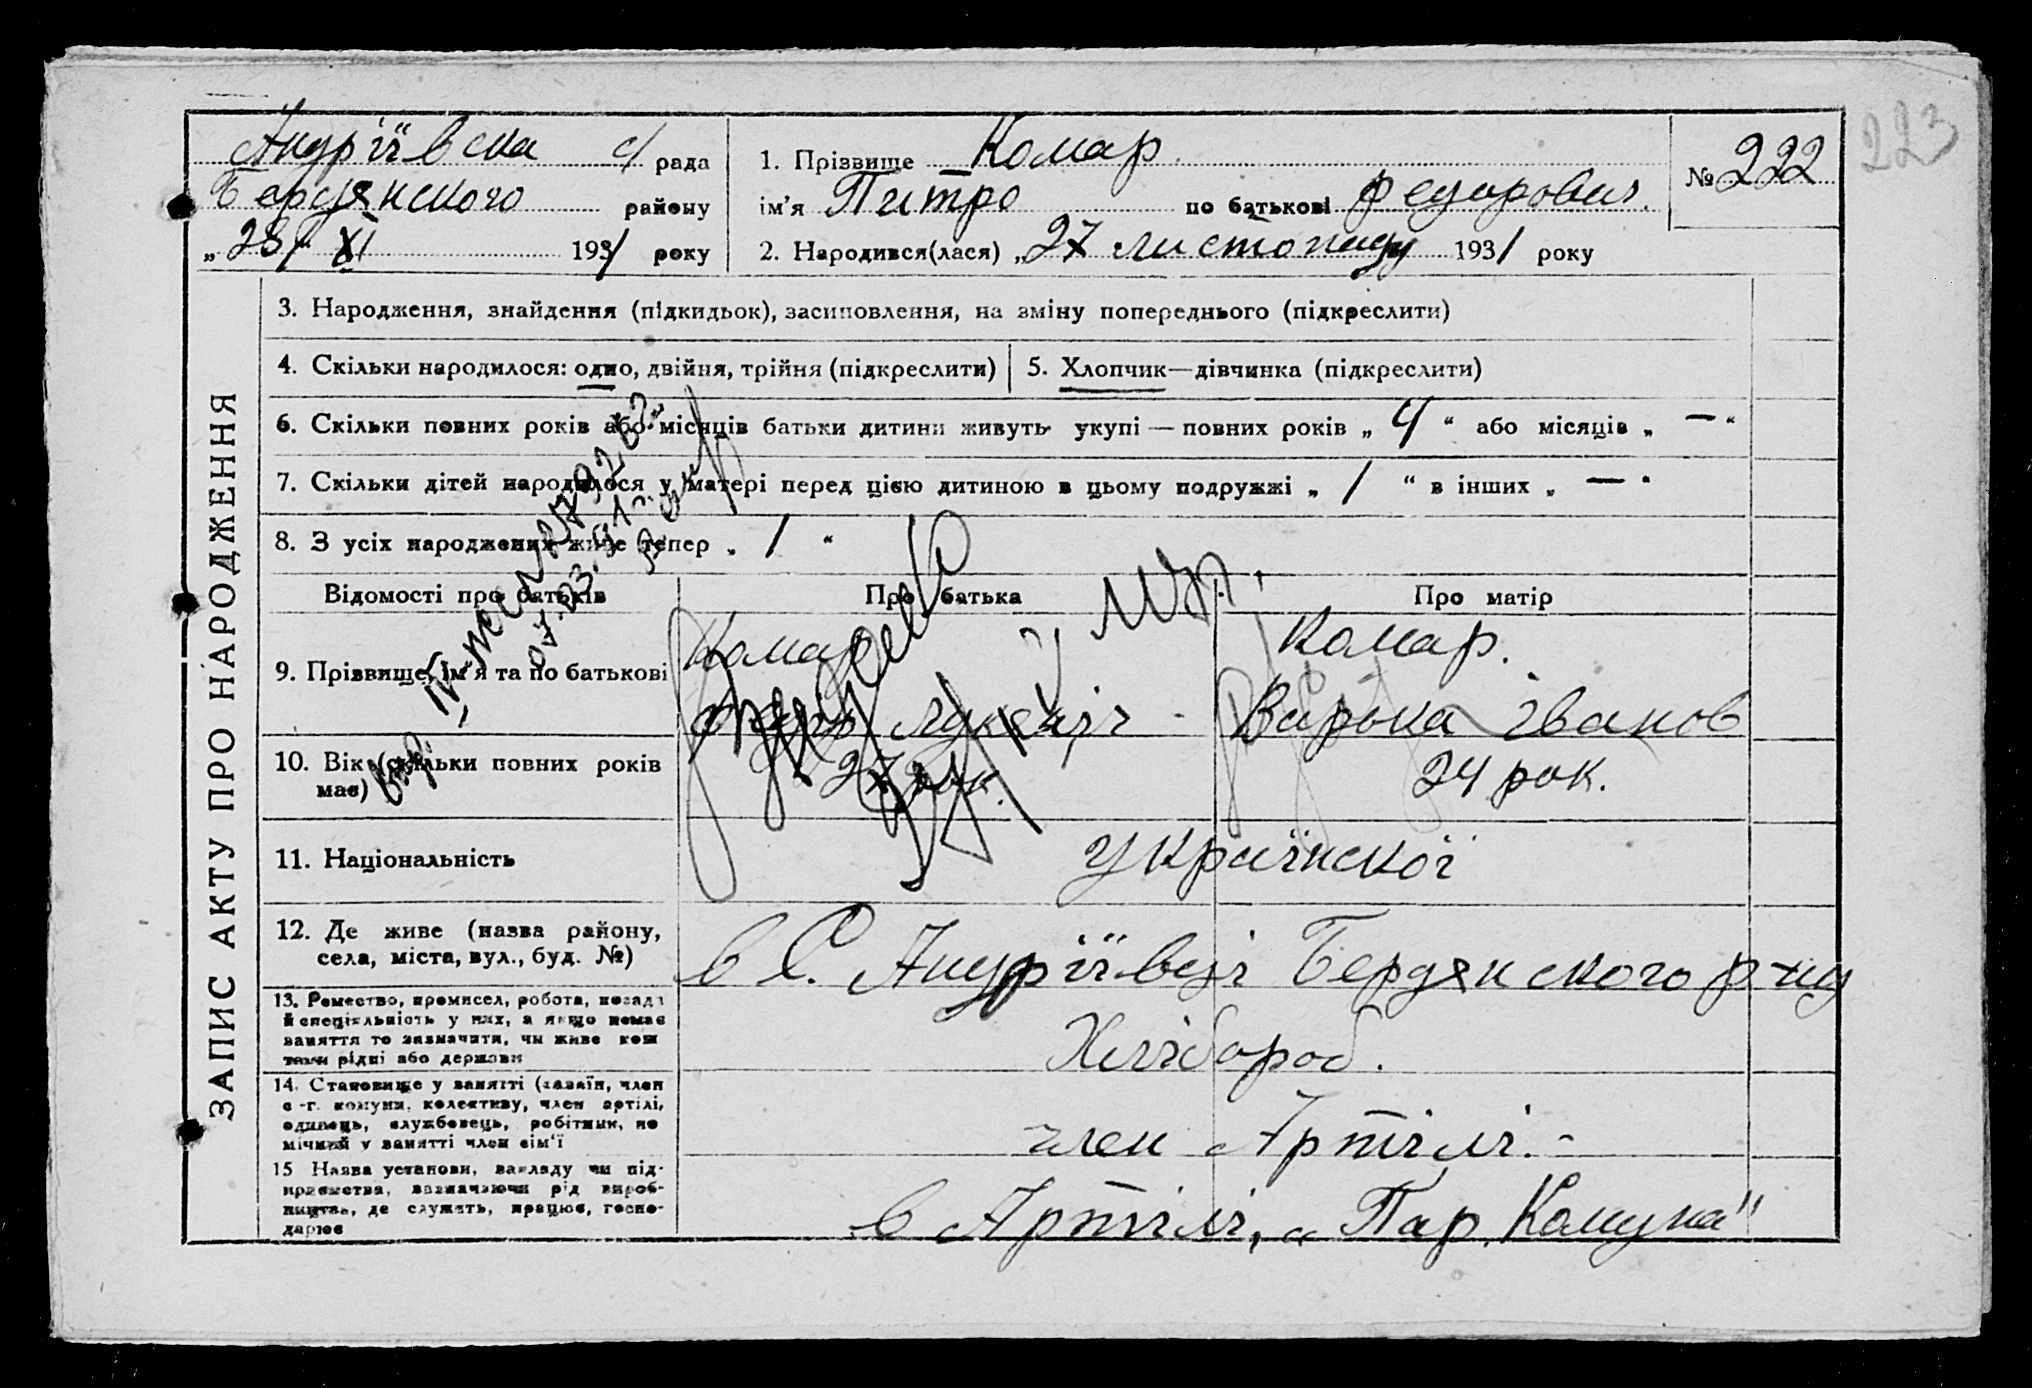 223
Андріївска с/ рада
Бердянского району
„28/ XI 1931 року
1. Прізвище Комар
ім’я Питро по батькові Федорович.
2. Народився(лася) „27 листопаду 1931 року
№ 222
ЗАПИС АКТУ ПРО НАРОДЖЕННЯ
3. Народження, знайдення (підкидьок), засиновлення, на зміну попереднього (підкреслити)
4. Скільки народилося: одно, двійня, трійня (підкреслити)
5. Хлопчик—дівчинка (підкреслити)
6. Скільки повних років або місяців батьки дитини живуть укупі — повних років „ 4 “ або місяців „ — “
7. Скільки дітей народилося у матері перед цією дитиною в цьому подружжі „ 1 “ в інших „ — “
8. З усіх народжених живе тепер „ 1 “
Відомості про батьків
Про батька
Про матір
9. Прізвище, ім’я та по батькові
Комар
Федір
Комар.
Варька Іванов
10. Вік (скільки повних років
має)
27 рок.
24 рок.
11. Національність
Української
12. Де живе (назва району,
села, міста, вул., буд. №)
в С. Андріївці Бердянского р-ну
13. Ремество, промисел, робота, посада
й спеціяльність у них, а якщо немає
заняття то зазначити, чи живе кош
тами рідні або держави
Хлібороб.
14. Становище у занятті (хазяїн, член
с-г. комуни, колективу, член артілі,
одинець, службовець, робітник, по
мічний у занятті член сім’ї
член Артілі.-
15 Назва установи, закладу чи під-
приємства, зазначаючи рід вироб-
ництва, де служить, працює, госпо-
дарює
в Артілі, „Пар. Комуна"